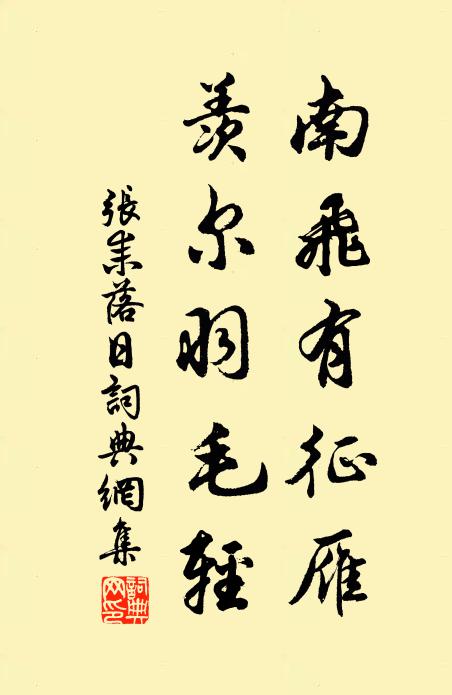 南飛有征雁
羨尔羽毛輕
張耒落日詞典網集
詞典网印